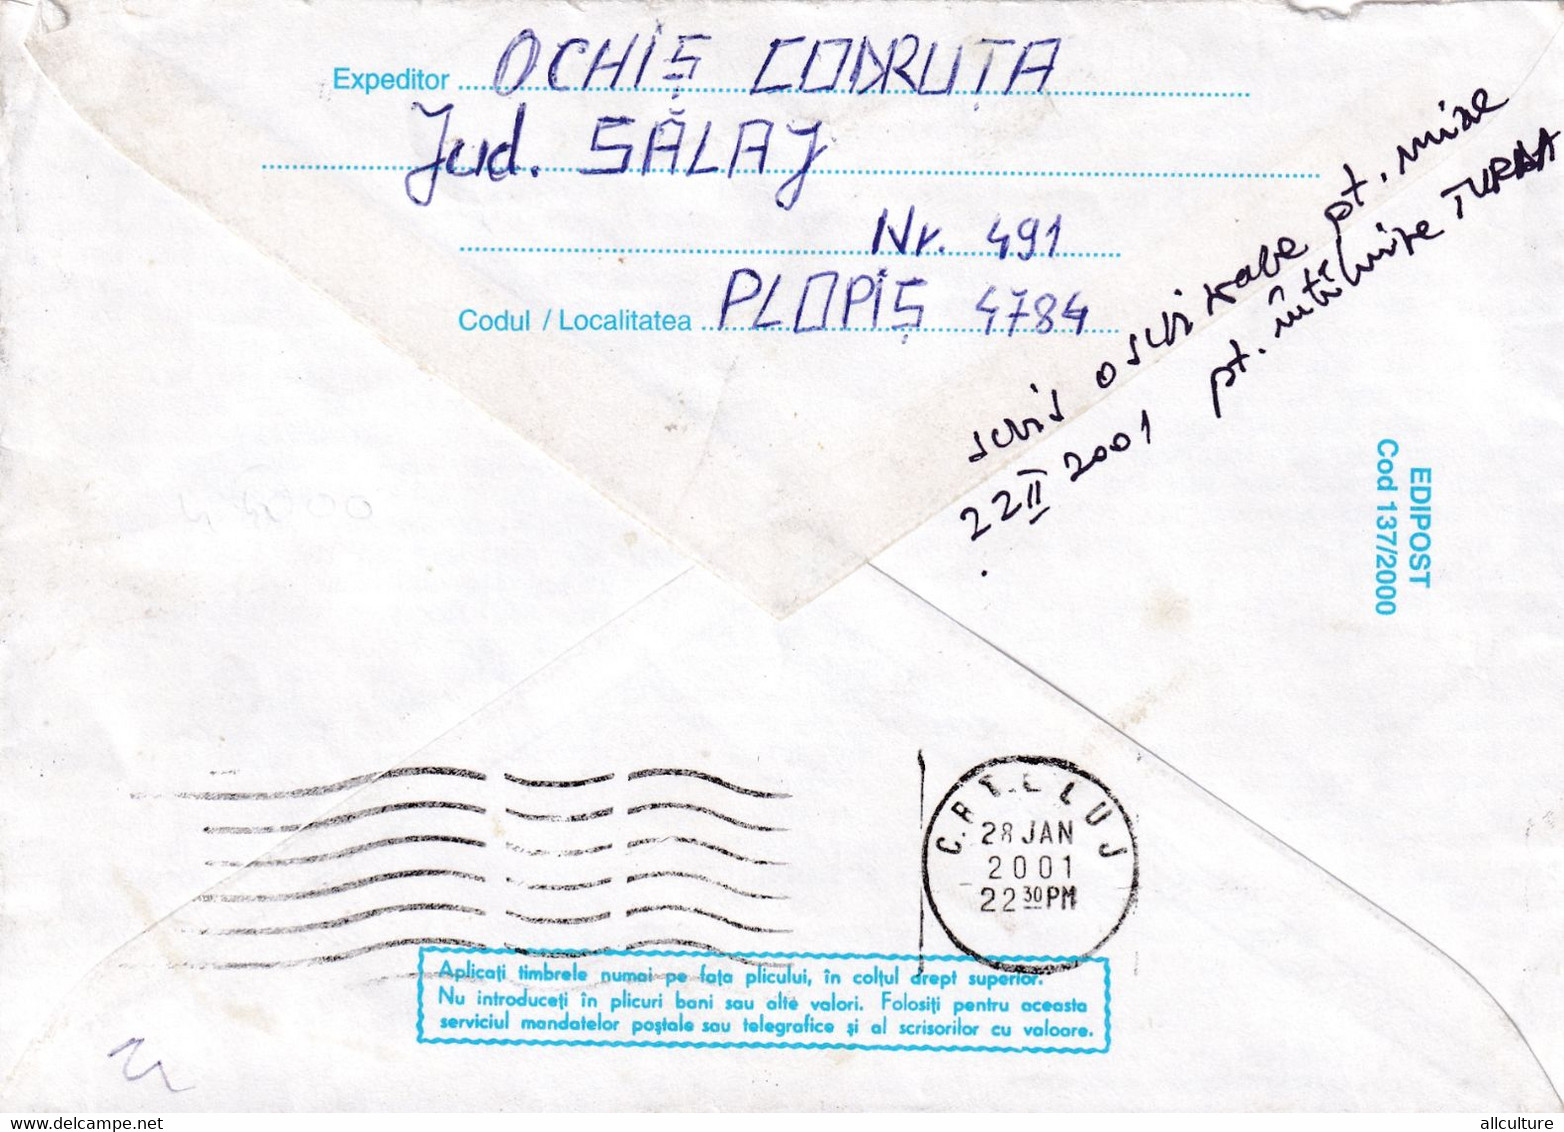 Expeditor OCHIȘ CODRUȚA
Jud. SĂLAJ
Nr. 491
Codul / Localitatea PLOPIȘ 4784
scris pt. mine
22 II 2001 pt. întîlnire TURDA
EDIPOST
Cod 137/2000
C.R.T. CLUJ
28 JAN
2001
22 30 PM
Aplicați timbrele numai pe fața plicului, în colțul drept superior.
Nu introduceți în plicuri bani sau alte valori. Folosiți pentru aceasta
serviciul mandatelor poștale sau telegrafice și al scrisorilor cu valoare.
allculture